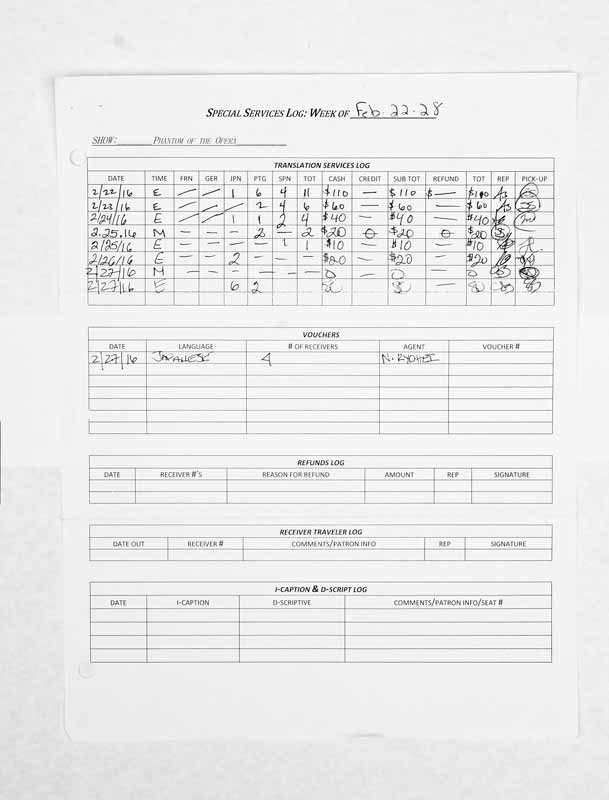 SPECIAL SERVICES LOG: WEEK OF Feb. 22-28
SHOW: PHANTOM OF THE OPERA
TRANSLATION SERVICES LOG
DATE TIME FRN GER JPN PTG SPN TOT CASH CREDIT SUB TOT REFUND TOT REP PICK-UP
2/22/16 E — — 1 6 4 11 $110 — $110 $— $110
2/23/16 E — — 2 4 6 $60 — $60 — $60
2/24/16 E — — 1 1 2 4 $40 — $40 — $40
2.25.16 M — — — 2 — 2 $20 0 $20 0 $20
2/25/16 E — — — — 1 1 $10 — $10 — $10
2/26/16 E — — 2 — — $20 — $20 — $20
2/27/16 M — — — — — — 0 — 0 — 0
2/27/16 E 6 2 —
VOUCHERS
DATE LANGUAGE # OF RECEIVERS AGENT VOUCHER #
2/27/16 JAPANESE 4 N. RYOHEI
REFUNDS LOG
DATE RECEIVER #'S REASON FOR REFUND AMOUNT REP SIGNATURE
RECEIVER TRAVELER LOG
DATE OUT RECEIVER # COMMENTS/PATRON INFO REP SIGNATURE
I-CAPTION & D-SCRIPT LOG
DATE I-CAPTION D-SCRIPTIVE COMMENTS/PATRON INFO/SEAT #